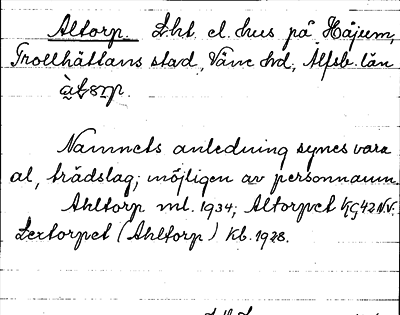 Altorp. Lht. el. hus på Håjum,
Trollhättans stad, Väne hd, Älfsb. län
Namnets anledning synes vara
al, trädslag; möjligen av personnamn.
Ahltorp ml. 1934; Altorpet KG42N.V.
Lextorpet (Ahltorp) Kb. 1928.